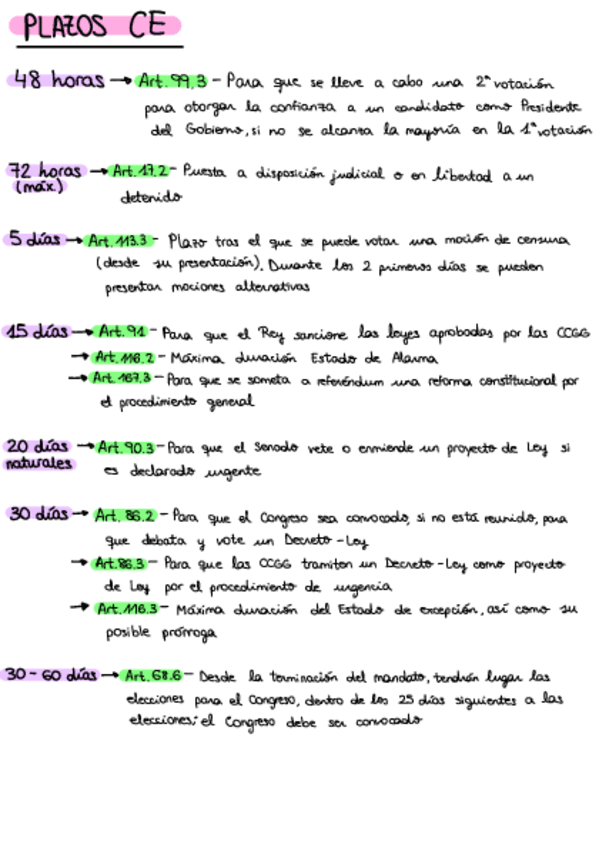 PLAZOS CE
48 horas → Art. 99.3 - Para que se lleve a cabo una 2ª votación
para otorgar la confianza a un candidato como Presidente
del Gobierno, si no se alcanza la mayoría en la 1ª votación
72 horas → Art. 17.2 - Puesta a disposición judicial o en libertad a un
(máx.)
detenido
5 días → Art. 113.3 - Plazo tras el que se puede votar una moción de censura
(desde su presentación). Durante los 2 primeros días se pueden
presentar mociones alternativas
15 días → Art. 91 - Para que el Rey sancione las leyes aprobadas por las CCGG
→ Art. 116.2 - Máxima duración Estado de Alarma
→ Art. 167.3 - Para que se someta a referéndum una reforma constitucional por
el procedimiento general
20 días → Art. 90.3 - Para que el Senado vete o enmiende un proyecto de Ley si
naturales
es declarado urgente
30 días → Art. 86.2 - Para que el Congreso sea convocado, si no está reunido, para
que debata y vote un Decreto-Ley
→ Art. 86.3 - Para que las CCGG tramiten un Decreto-Ley como proyecto
de Ley por el procedimiento de urgencia
→ Art. 116.3 - Máxima duración del Estado de excepción, así como su
posible prórroga
30 - 60 días → Art. 68.6 - Desde la terminación del mandato, tendrán lugar las
elecciones para el Congreso, dentro de los 25 días siguientes a las
elecciones; el Congreso debe ser convocado